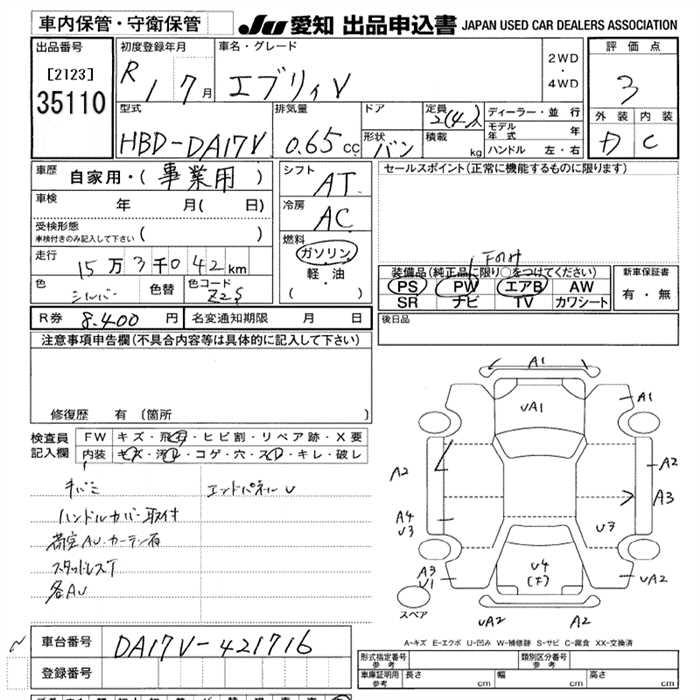 車内保管・守衛保管
JU 愛知 出品申込書 JAPAN USED CAR DEALERS ASSOCIATION
出品番号
[2123]
35110
初度登録年月
R 1 7月
車名・グレード
エブリィV
2WD
・
4WD
評価点
3
外装 内装
D C
型式
HBD-DA17V
排気量
0.65 cc
ドア
形状
バン
定員
2(4)人
積載
kg
ディーラー・並行
モデル年式 年
ハンドル 左・右
車歴
自家用・(事業用)
車検
年 月( 日)
受検形態
車検付きのみ記入して下さい ( )
走行
15万3千042km
色
シルバー
色替
色コード
Z2S
シフト
AT
冷房
AC
燃料
ガソリン
・
軽・油
( )
セールスポイント(正常に機能するものに限ります)
Fのみ
装備品(純正品に限り○をつけてください)
PS PW エアB AW
SR ナビ TV カワシート
新車保証書
有・無
R券 8.400円
名変通知期限 月 日
後日品
注意事項申告欄(不具合内容等は具体的に記入して下さい)
修復歴 有 (箇所
検査員
記入欄
FW キズ・飛石・ヒビ割・リペア跡・X要
内装 キズ・汚レ・コゲ・穴・スレ・キレ・破レ
キバミ
ハンドルカバー取付
荷室AU・カーテン有
スタッドレスT
各AU
エンドパネルU
A1
UA1
A1
A2
A2
A3
A4
U3
U3
A3
U1
U4
(F)
UA2
UA2
A2
スペア
A-キズ E-エクボ U-凹み W-補修跡 S-サビ C-腐食 XX-交換済
車台番号
DA17V-421716
登録番号
形式指定番号
参考
類別区分番号
参考
車庫証明用
参考
長さ cm
幅 cm
高さ cm